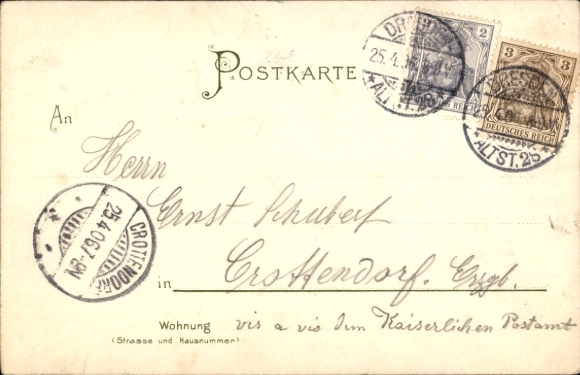 DRESDEN
25.4.06
*ALTST. 26
2
DEUTSCHES REICH
3
DEUTSCHES REICH
DRESDEN
*ALTST. 26
POSTKARTE
An
Herrn
Ernst Schubert
in Crottendorf. Erzgb.
CROTTENDORF
25.4.06.7-8N
Wohnung vis a vis dem Kaiserlichen Postamt
(Strasse und Hausnummer)